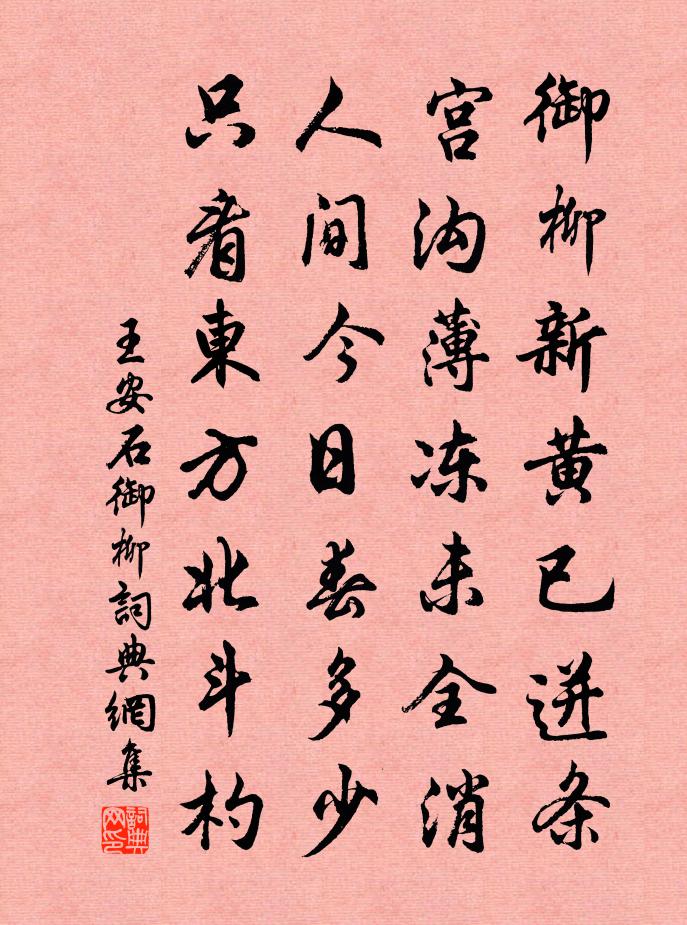 御柳新黄已迸条
宫沟薄冻未全消
人间今日春多少
只看東方北斗杓
王安石御柳詞典網集
詞典网印